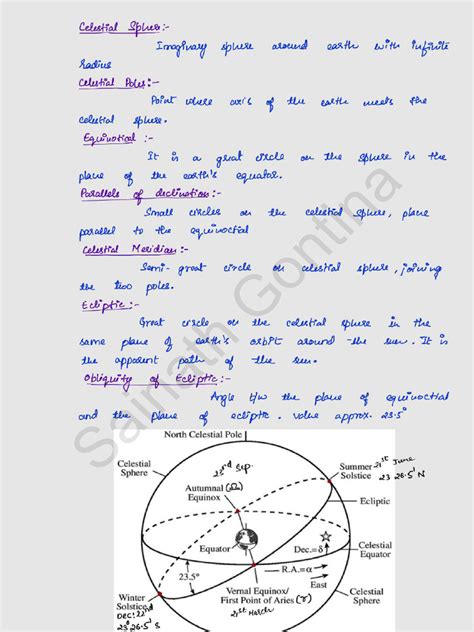 Celestial Sphere:-
Imaginary sphere around earth with infinite
radius
Celestial Poles:-
Point where axis of the earth meets the
celestial sphere.
Equinotical :-
It is a great circle on the sphere in the
plane of the earth's equator.
Parallels of declination:-
Small circles on the celestial sphere, plane
parallel to the equinoctial
Celestial Meridian:-
Semi-great circle on celestial sphere, joining
the two poles.
Ecliptic:-
Great circle on the celestial sphere in the
same plane of earth's orbit around the sun. It is
the apparent path of the sun.
Obliquity of Ecliptic:-
Angle b/w the plane of equinoctial
and the plane of ecliptic. value approx. 23.5°
Sainath Gontina
North Celestial Pole
Celestial
Sphere
23rd Sep.
Autumnal (♎)
Equinox
Summer 21st June
Solstice 23° 26.5' N
Ecliptic
Equator
Dec.=δ
Celestial
Equator
R.A.=α
East
23.5°
Winter
Solstice
Dec: 22nd
23° 26.5' S
Vernal Equinox/
First Point of Aries (♈)
21st March
Celestial
Sphere